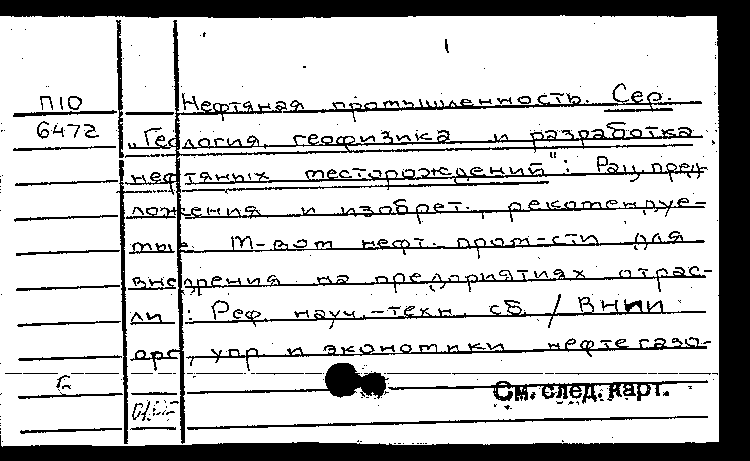 П10 Нефтяная промышленность. Сер.
6472 „Геология, геофизика и разработка
нефтяных месторождений": Рац. пред-
ложения и изобрет., рекомендуе-
мые М-вом нефт. пром-сти для
внедрения на предприятиях отрас-
ли : Реф. науч.-техн. сб. / ВНИИ
орг., упр. и экономики нефтегазо-
См. след. карт.